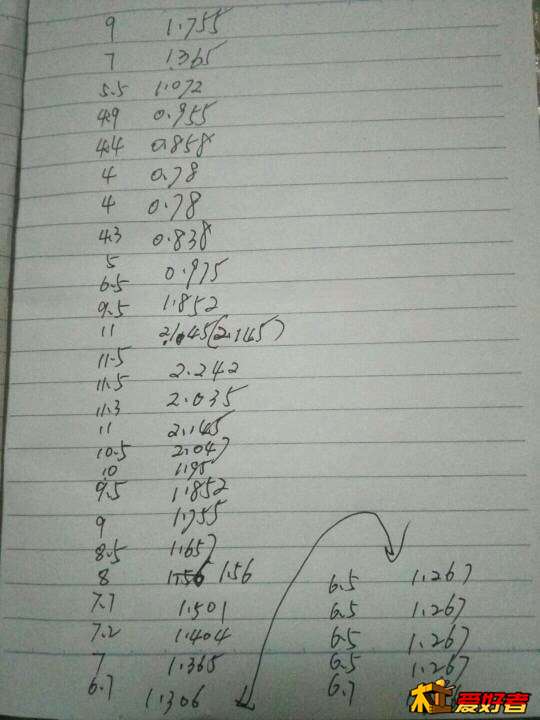 9 1.755
7 1.365
5.5 1.072
4.9 0.955
4.4 0.858
4 0.78
4 0.78
4.3 0.838
5 0.975
6.5
9.5 1.852
11 2.145(2.145)
11.5
11.5 2.242
11.3 2.035
11 2.145
10.5 2.047
10 1.95
9.5 1.852
9 1.755
8.5 1.657
8 1.56 1.56
7.7 1.501
7.2 1.404
7 1.365
6.7 1.306
6.5 1.267
6.5 1.267
6.5 1.267
6.5 1.267
6.7
爱好者